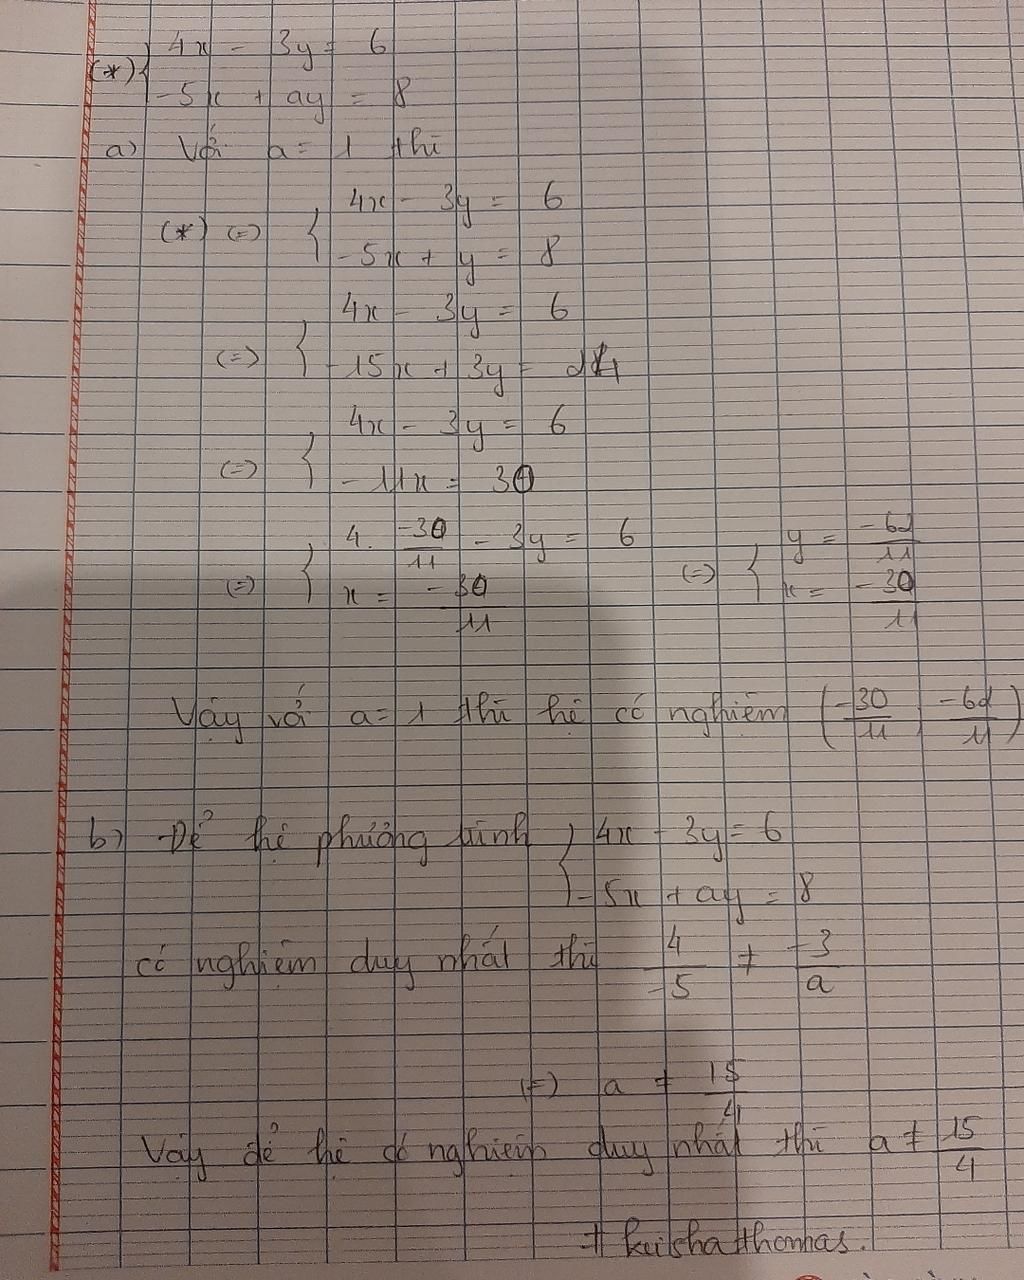 4x - 3y = 6
(*) {
-5x + ay = 8
a) Với a = 1 thì
4x - 3y = 6
(*) (=) {
-5x + y = 8
4x - 3y = 6
(=) {
-15x + 3y = 24
4x - 3y = 6
(=) {
-11x = 30
4. -30/11 - 3y = 6 y = -62/11
(=) { (=) {
x = -30/11 x = -30/11
Vậy với a = 1 thì hệ có nghiệm (-30/11, -62/11)
b) Để hệ phương trình { 4x - 3y = 6
-5x + ay = 8
có nghiệm duy nhất thì 4/-5 ≠ -3/a
(=) a ≠ 15/4
Vậy để hệ có nghiệm duy nhất thì a ≠ 15/4
# keishathomas.